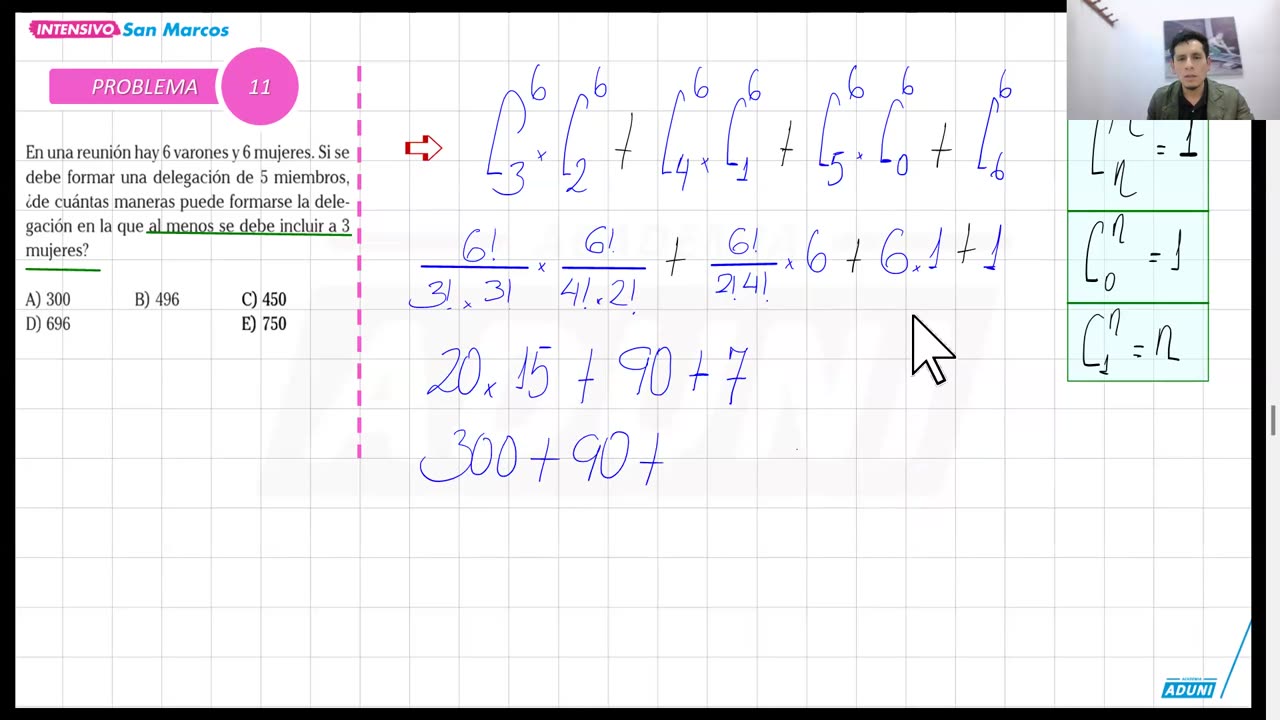 INTENSIVO San Marcos
PROBLEMA 11
En una reunión hay 6 varones y 6 mujeres. Si se
debe formar una delegación de 5 miembros,
¿de cuántas maneras puede formarse la dele-
gación en la que al menos se debe incluir a 3
mujeres?
A) 300 B) 496 C) 450
D) 696 E) 750
C 6 3 × C 6 2 + C 6 4 × C 6 1 + C 6 5 × C 6 0 + C 6 6
6!/3!×3! × 6!/4!×2! + 6!/2!4! × 6 + 6×1 + 1
20×15 + 90 + 7
300 + 90 +
C n n = 1
C n 0 = 1
C n 1 = n
ACADEMIA
ADUNI